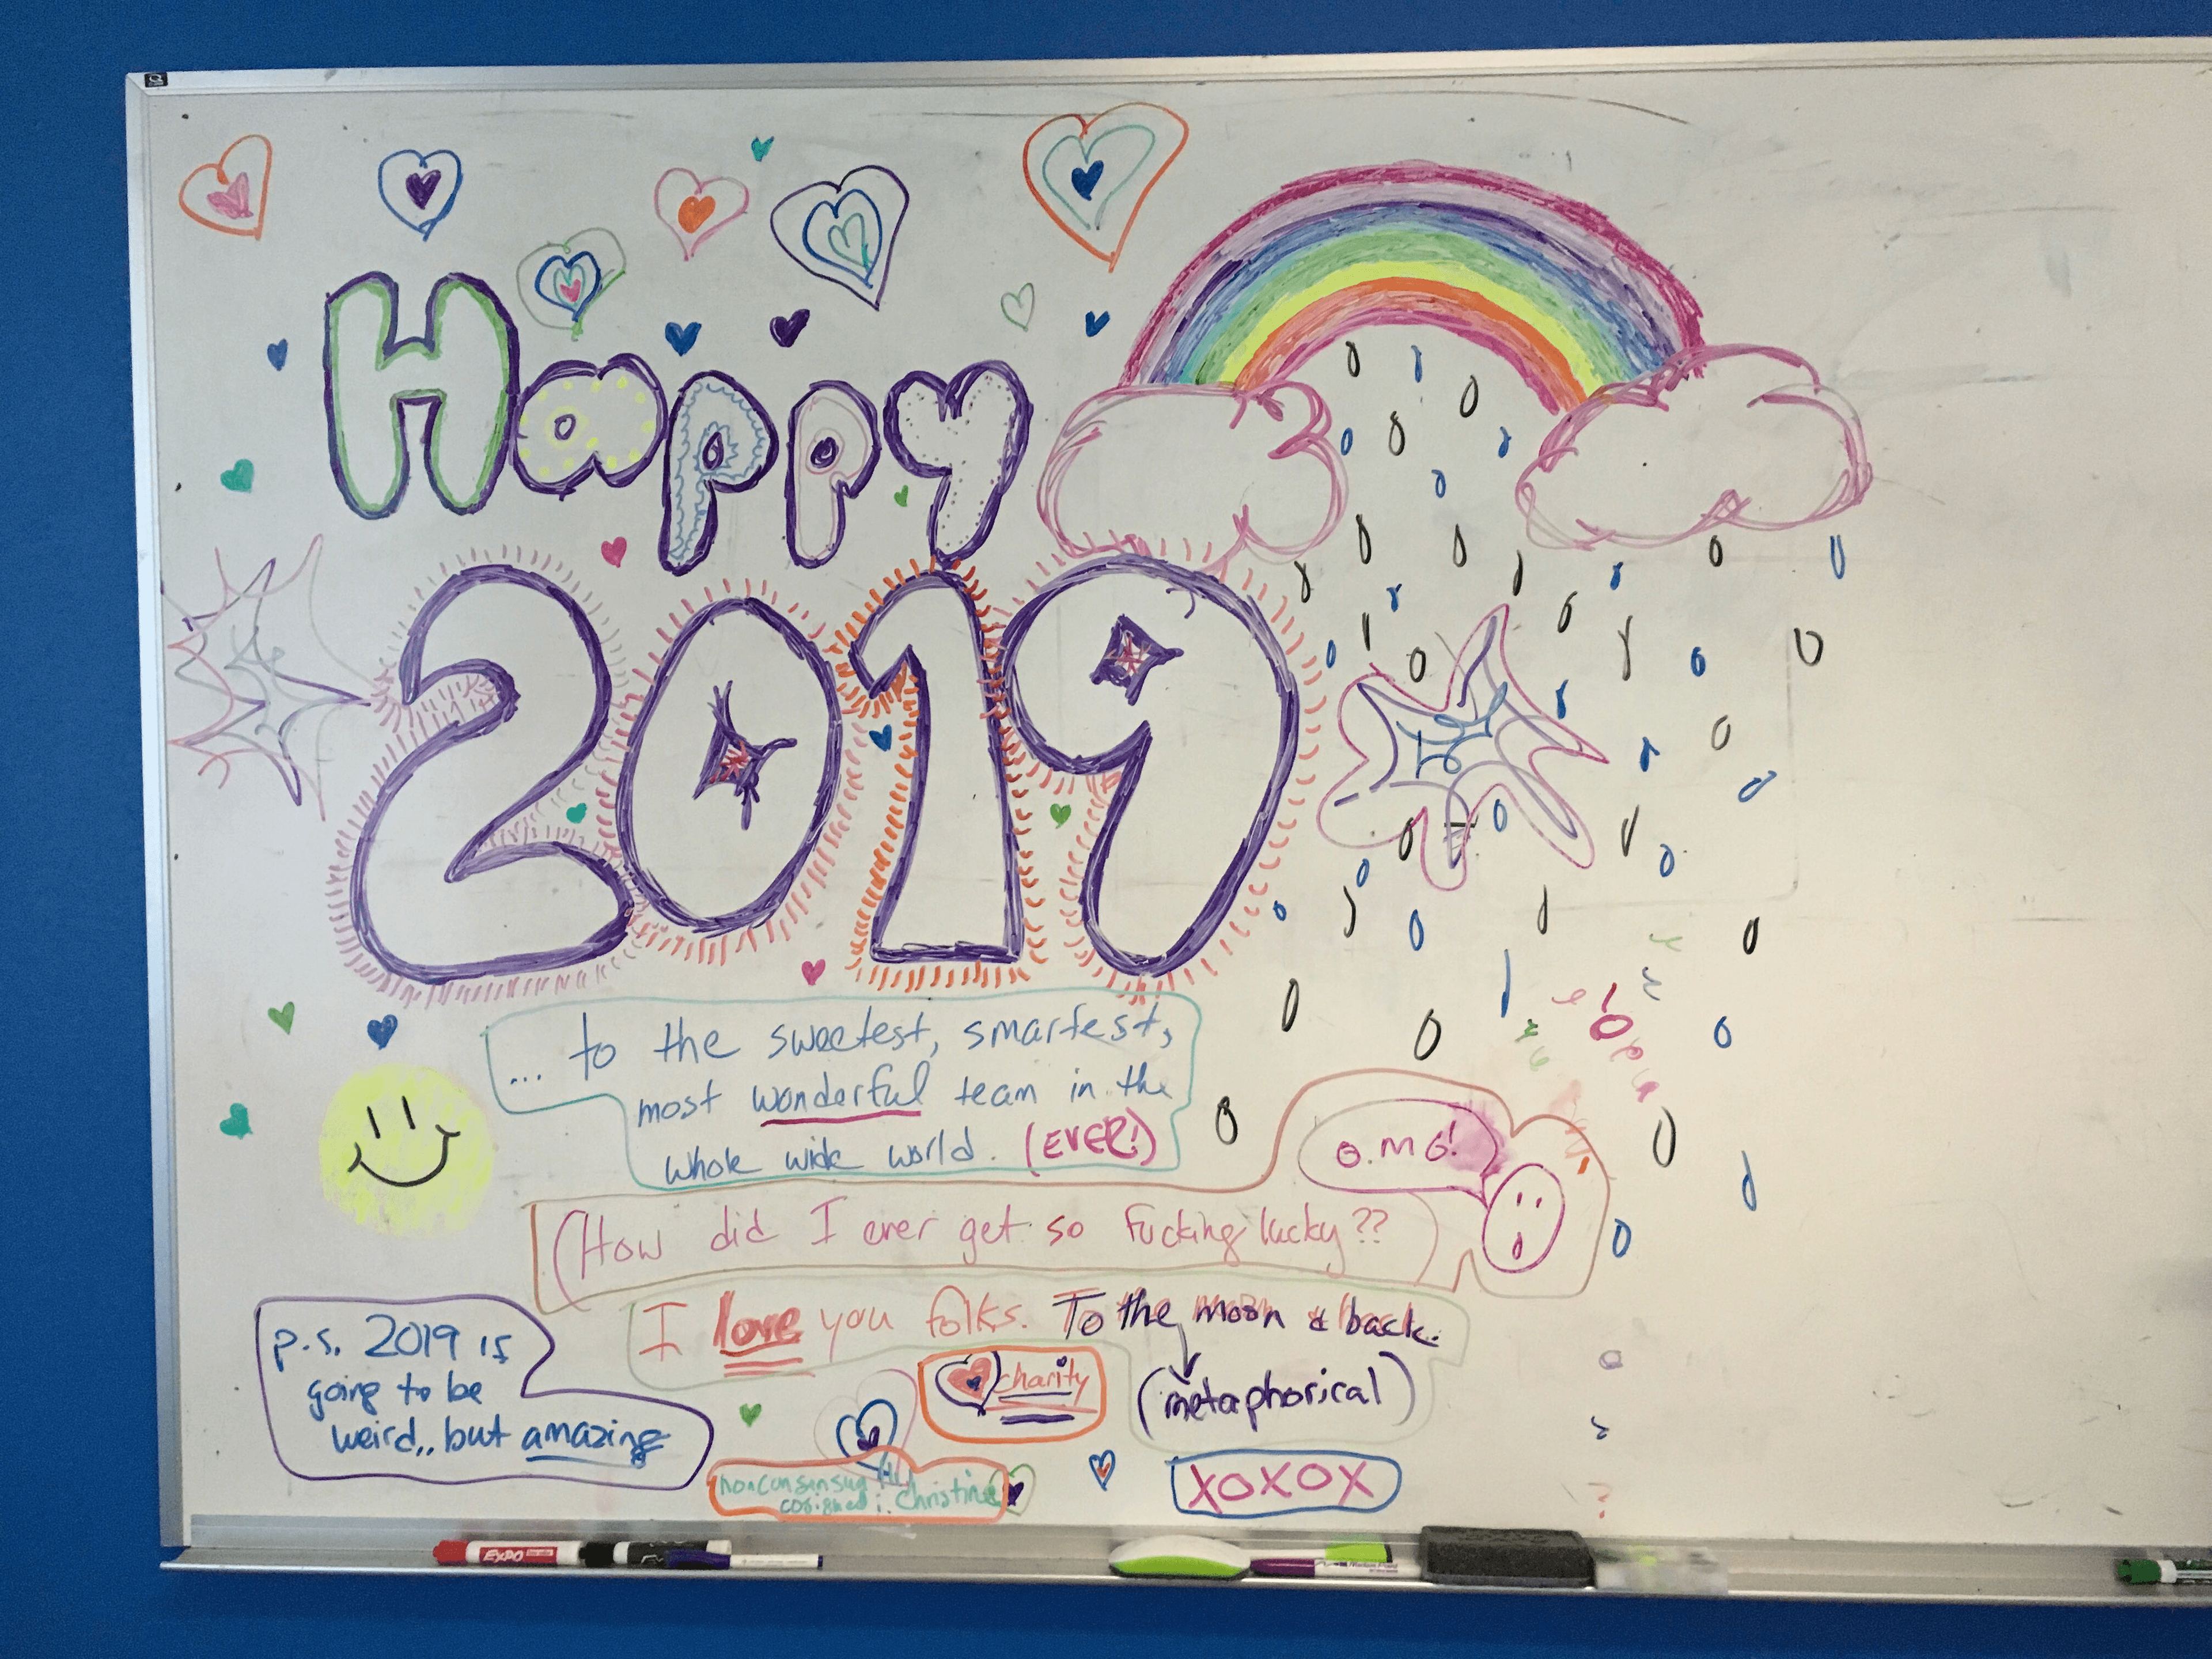 Happy
2019
... to the sweetest, smartest,
most wonderful team in the
whole wide world. (EVER!)
O.M.G!
(How did I ever get so fucking lucky??)
I love you folks. To the moon & back.
(metaphorical)
charity
p.s. 2019 is
going to be
weird,, but amazing
cosigned: Christine
XOXOX
EXPO